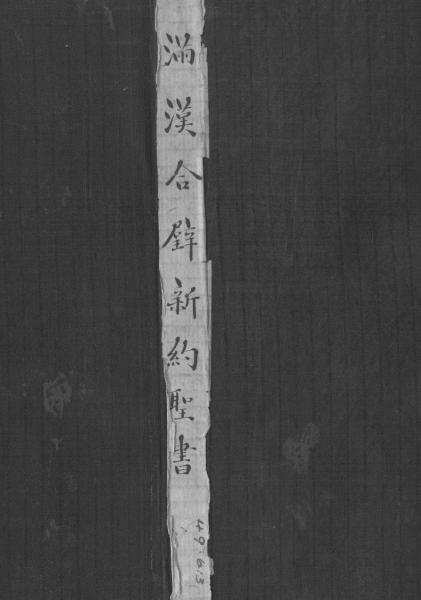 滿漢合璧新約聖書